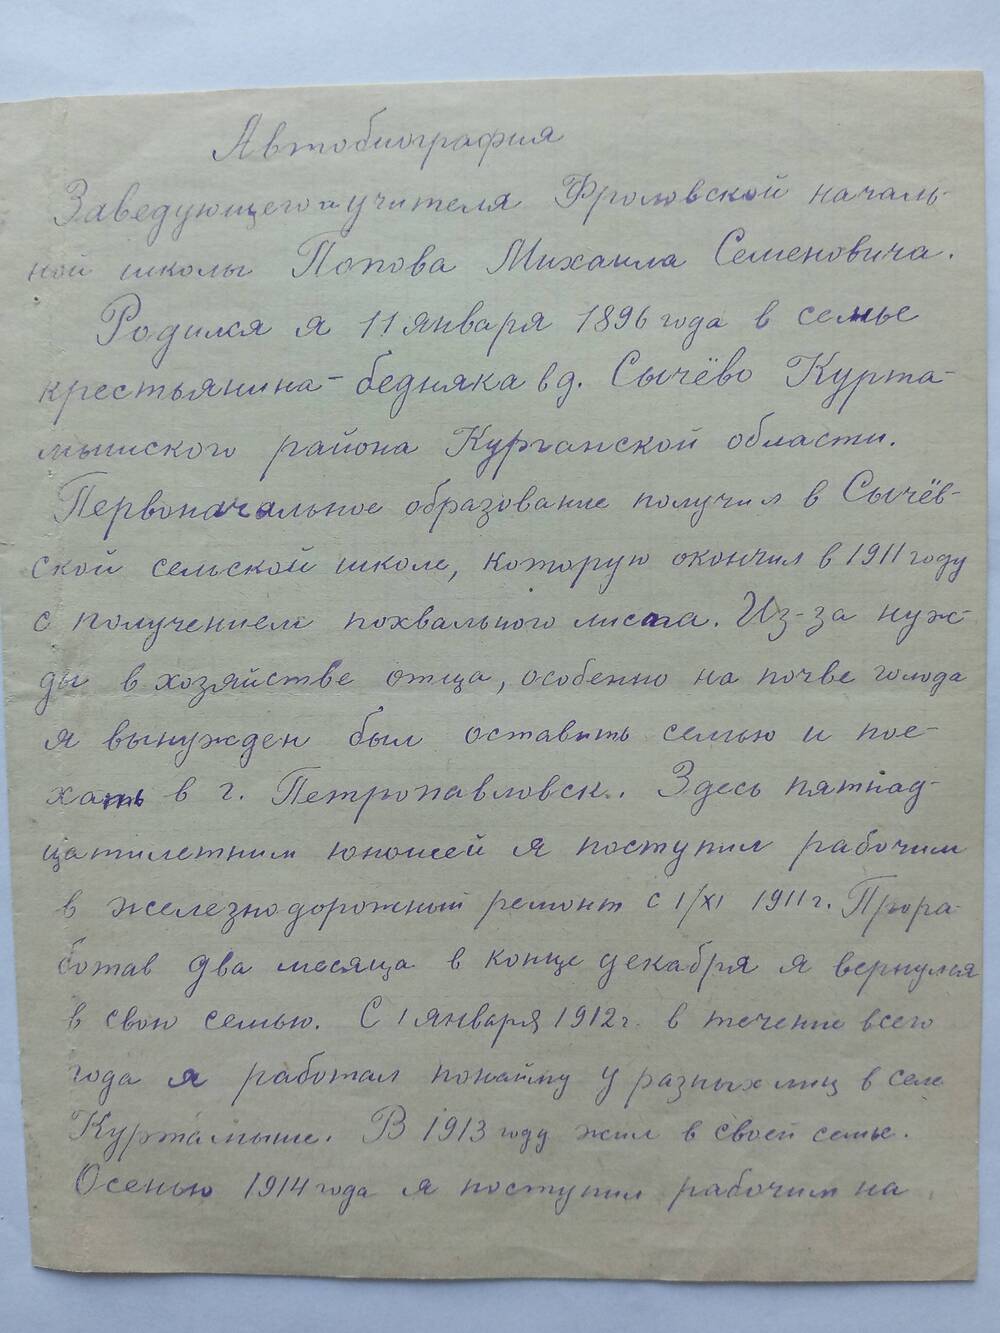 Автобиография
Заведующего и учителя Фроловской началь-
ной школы Попова Михаила Семеновича.
Родился я 11 января 1896 года в семье
крестьянина – бедняка в д. Сычёво Курта-
мышского района Курганской области.
Первоначальное образование получил в Сычёв-
ской сельской школе, которую окончил в 1911 году
с получением похвального листа. Из-за нуж-
ды в хозяйстве отца, особенно на почве голода
я вынужден был оставить семью и пое-
хать в г. Петропавловск. Здесь пятнад-
цатилетним юношей я поступил рабочим
в железнодорожный ремонт с 1/XI 1911 г. Прора-
ботав два месяца в конце декабря я вернулся
в свою семью. С 1 января 1912 г. в течение всего
года я работал понайму у разных лиц в селе
Куртамыше. В 1913 году жил в своей семье.
Осенью 1914 года я поступил рабочим на